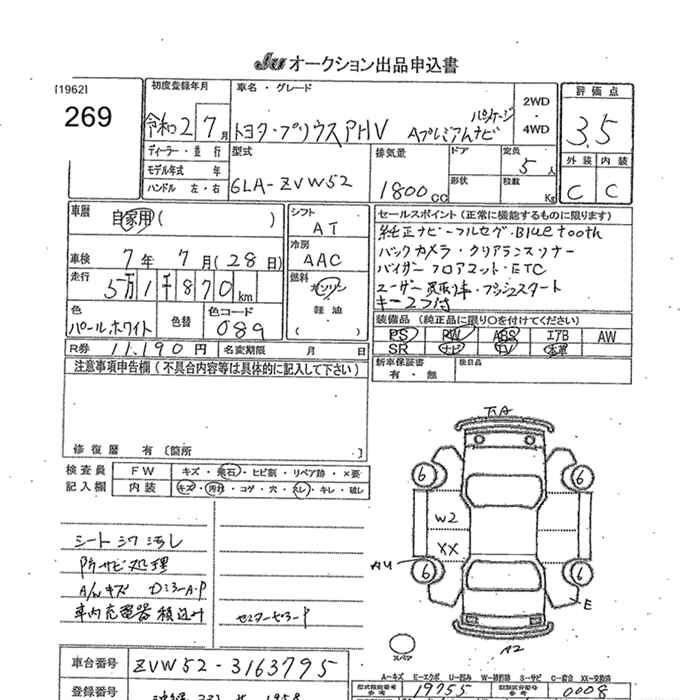 Ju オークション出品申込書
[1962]
269
初度登録年月
令和2年7月
ディーラー・並行
モデル年式 年
ハンドル 左・右
車名・グレード
トヨタ・プリウスPHV Aプレミアムナビパッケージ
2WD
・
4WD
型式
6LA-ZVW52
排気量
1800cc
ドア
形状
定員
5人
積載
Kg
評価点
3.5
外装 内装
C C
車歴
自家用( )
車検 7年 7月(28日)
走行
5万1千870km
色
パールホワイト
色替
色コード
089
シフト
AT
冷房
AAC
燃料
ガソリン
軽油
( )
セールスポイント(正常に機能するものに限ります)
純正ナビ・フルセグ・Bluetooth
バックカメラ・クリアランスソナー
バイザー フロアマット・ETC
ユーザー買取車・プッシュスタート
キー2つ付
装備品(純正品に限り○を付けてください)
PS PW ABS エアB AW
SR ナビ TV 本革
新車保証書
有・無
後日品
R券 11,190円
名変期限 月 日
注意事項申告欄(不具合内容等は具体的に記入して下さい)
修復歴 有〔箇所 〕
検査員
記入欄
FW キズ・飛石・ヒビ割・リペア跡・×要
内装 キズ・汚れ・コゲ・穴・スレ・キレ・破レ
シートシワ汚れ
防サビ処理
A/wキズ DミラーA・P
車内充電器積込み
センターピラーP
下A
6
6
W2
XX
6
6
E
A2
スペア
A-キズ E-エクボ U-凹み W-補修跡 S-サビ C-腐蝕 XX-交換済
車台番号
ZVW52-3163795
登録番号
型式指定番号
参考
19755
類別区分番号
参考
0008